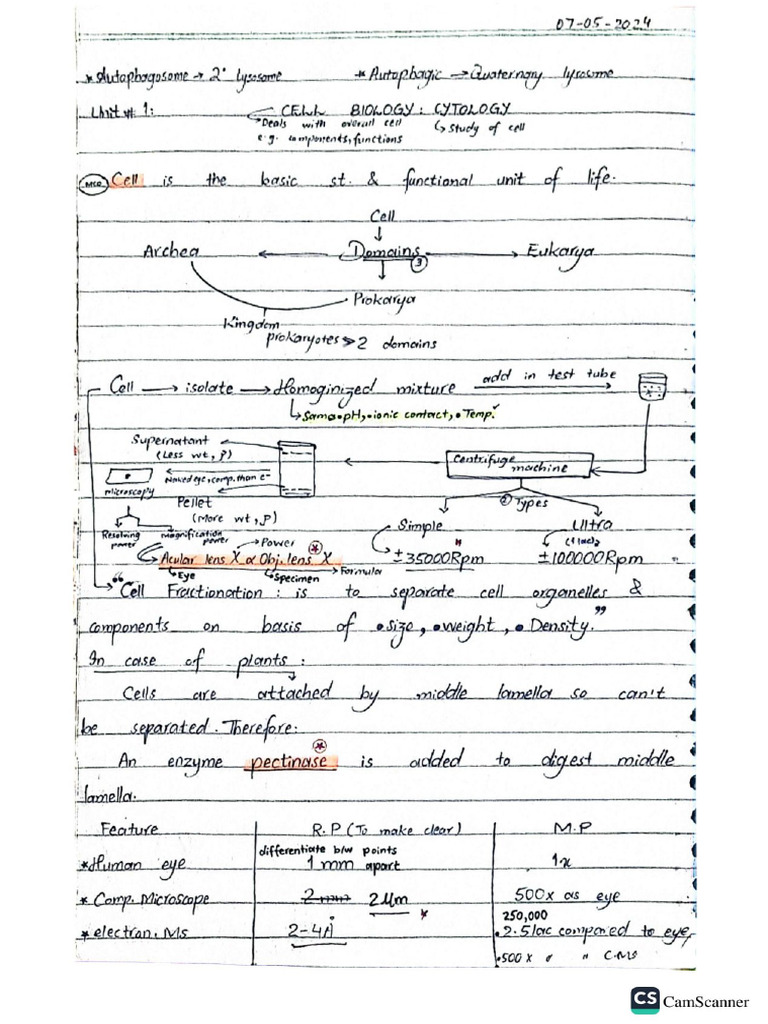 07-05-2024
* Autophagosome → 2° lysosome * Autophagic → Quaternary lysosome
Unit # 1: CELL BIOLOGY: CYTOLOGY
→Deals with overall cell ↳ study of cell
e.g. components, functions
MCQ Cell is the basic st. & functional unit of life.
Cell
↓
Archea ← Domains → Eukarya
3
Prokarya
Kingdom
prokaryotes ⇒ 2 domains
Cell → isolate → Homoginized mixture add in test tube
↳ Sama•pH, •ionic contact, •Temp.
Supernatant
(Less wt, ρ)
Centrifuge
machine
Naked eye, comp. than e-
microscopy
Pellet
(More wt, ρ)
② Types
Resolving power
magnification power
→ Power
Simple
Ultra
(1 lac)
Acular lens X ∝ Obj. lens X
±35000Rpm
±100000Rpm
↳ Eye ↳ Specimen → Formula
“Cell Fractionation : is to separate cell organelles &
components on basis of •size, •weight, •Density.”
In case of plants :
Cells are attached by middle lamella so can't
be separated. Therefore:
An enzyme pectinase is added to digest middle
lamella.
Feature R.P (To make clear) M.P
differentiate b/w points
*Human eye 1 mm apart 1x
* Comp. Microscope 2 mm 2 Um 500x as eye
250,000
* electran. Ms 2-4Å •2.5lac compared to eye,
•500 x " " C.MS
CS CamScanner